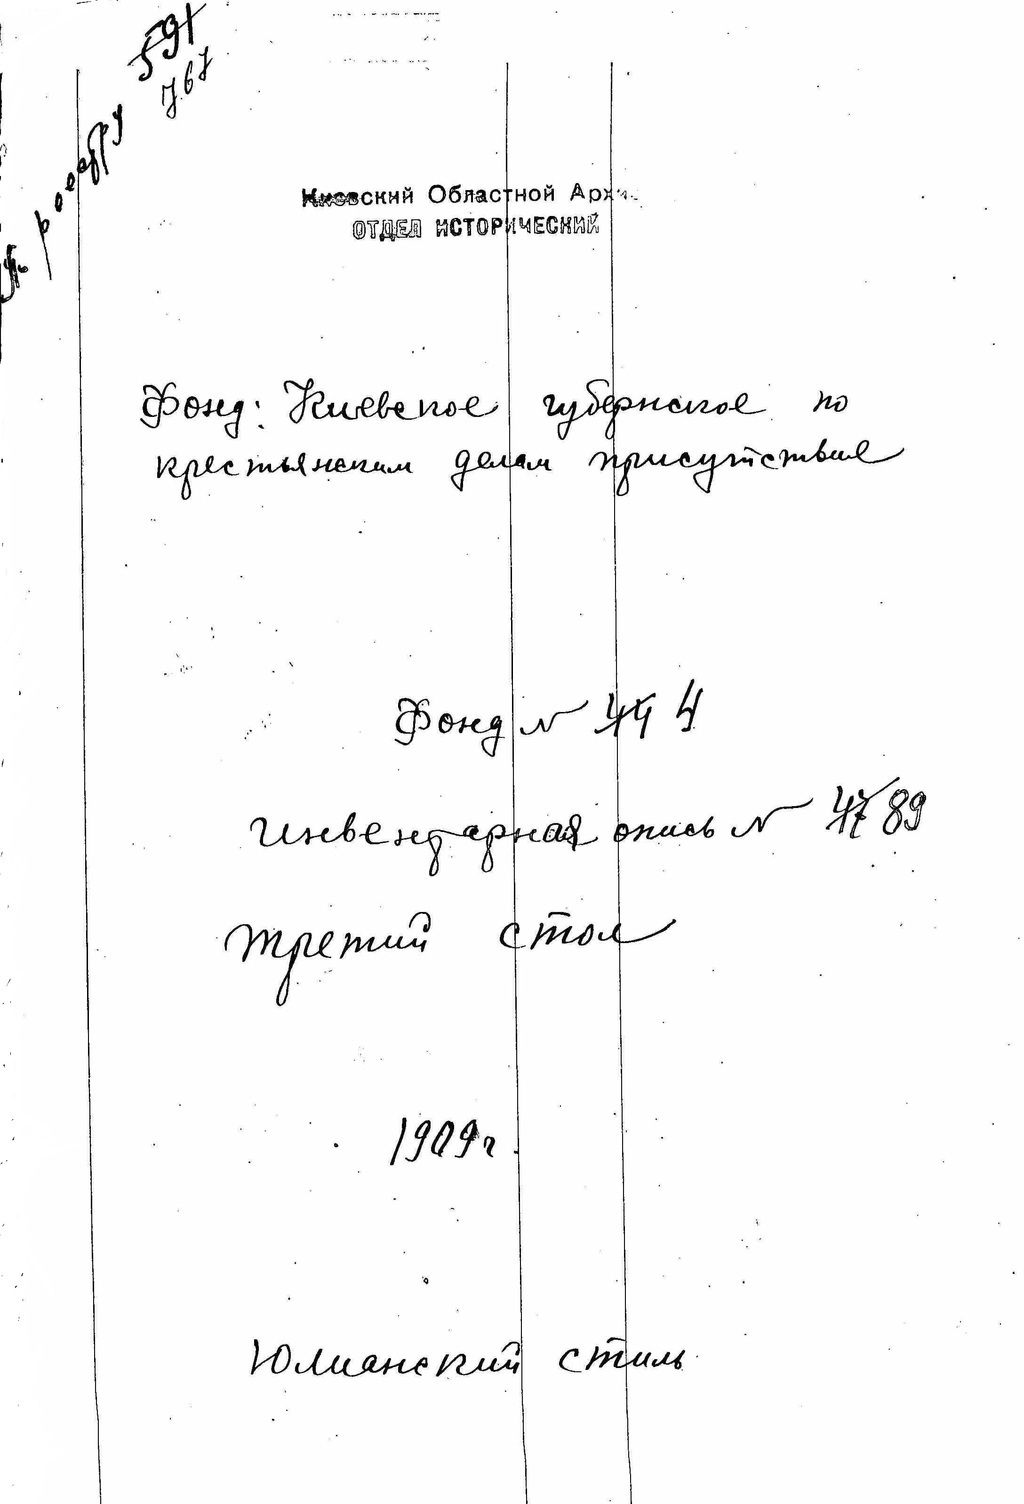 № реестру 591
767
Киевский Областной Архи
ОТДЕЛ ИСТОРИЧЕСКИЙ
Фонд: Киевское губернское по
крестьянским делам присутствие
Фонд № 444 4
Инвентарная опись № 47 89
Третий стол
1909 г.
Юлианский стиль